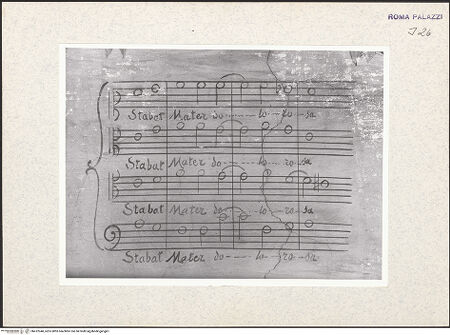 ROMA PALAZZI
J 26
Stabat Mater do - - - - lo - ro - sa
Stabat Mater do - - - - lo - ro - sa
Stabat Mater do - - - - lo - ro - sa
Stabat Mater do - - - - lo - ro - sa